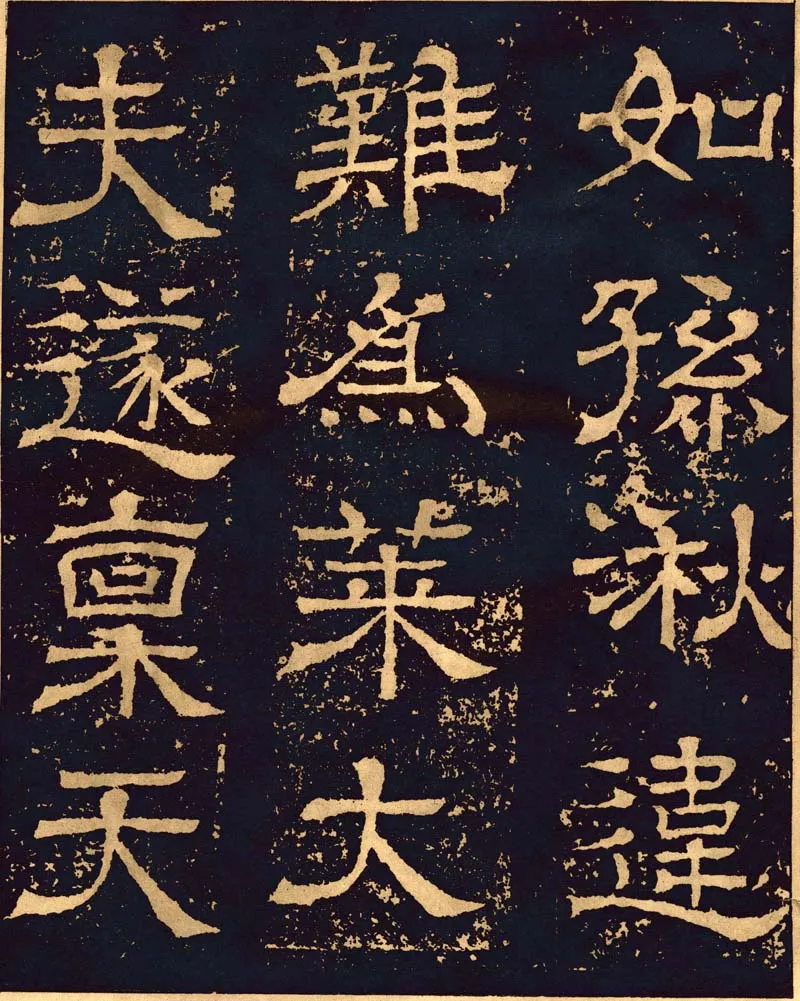 如孫湫違
難為萊大
夫遂稟天